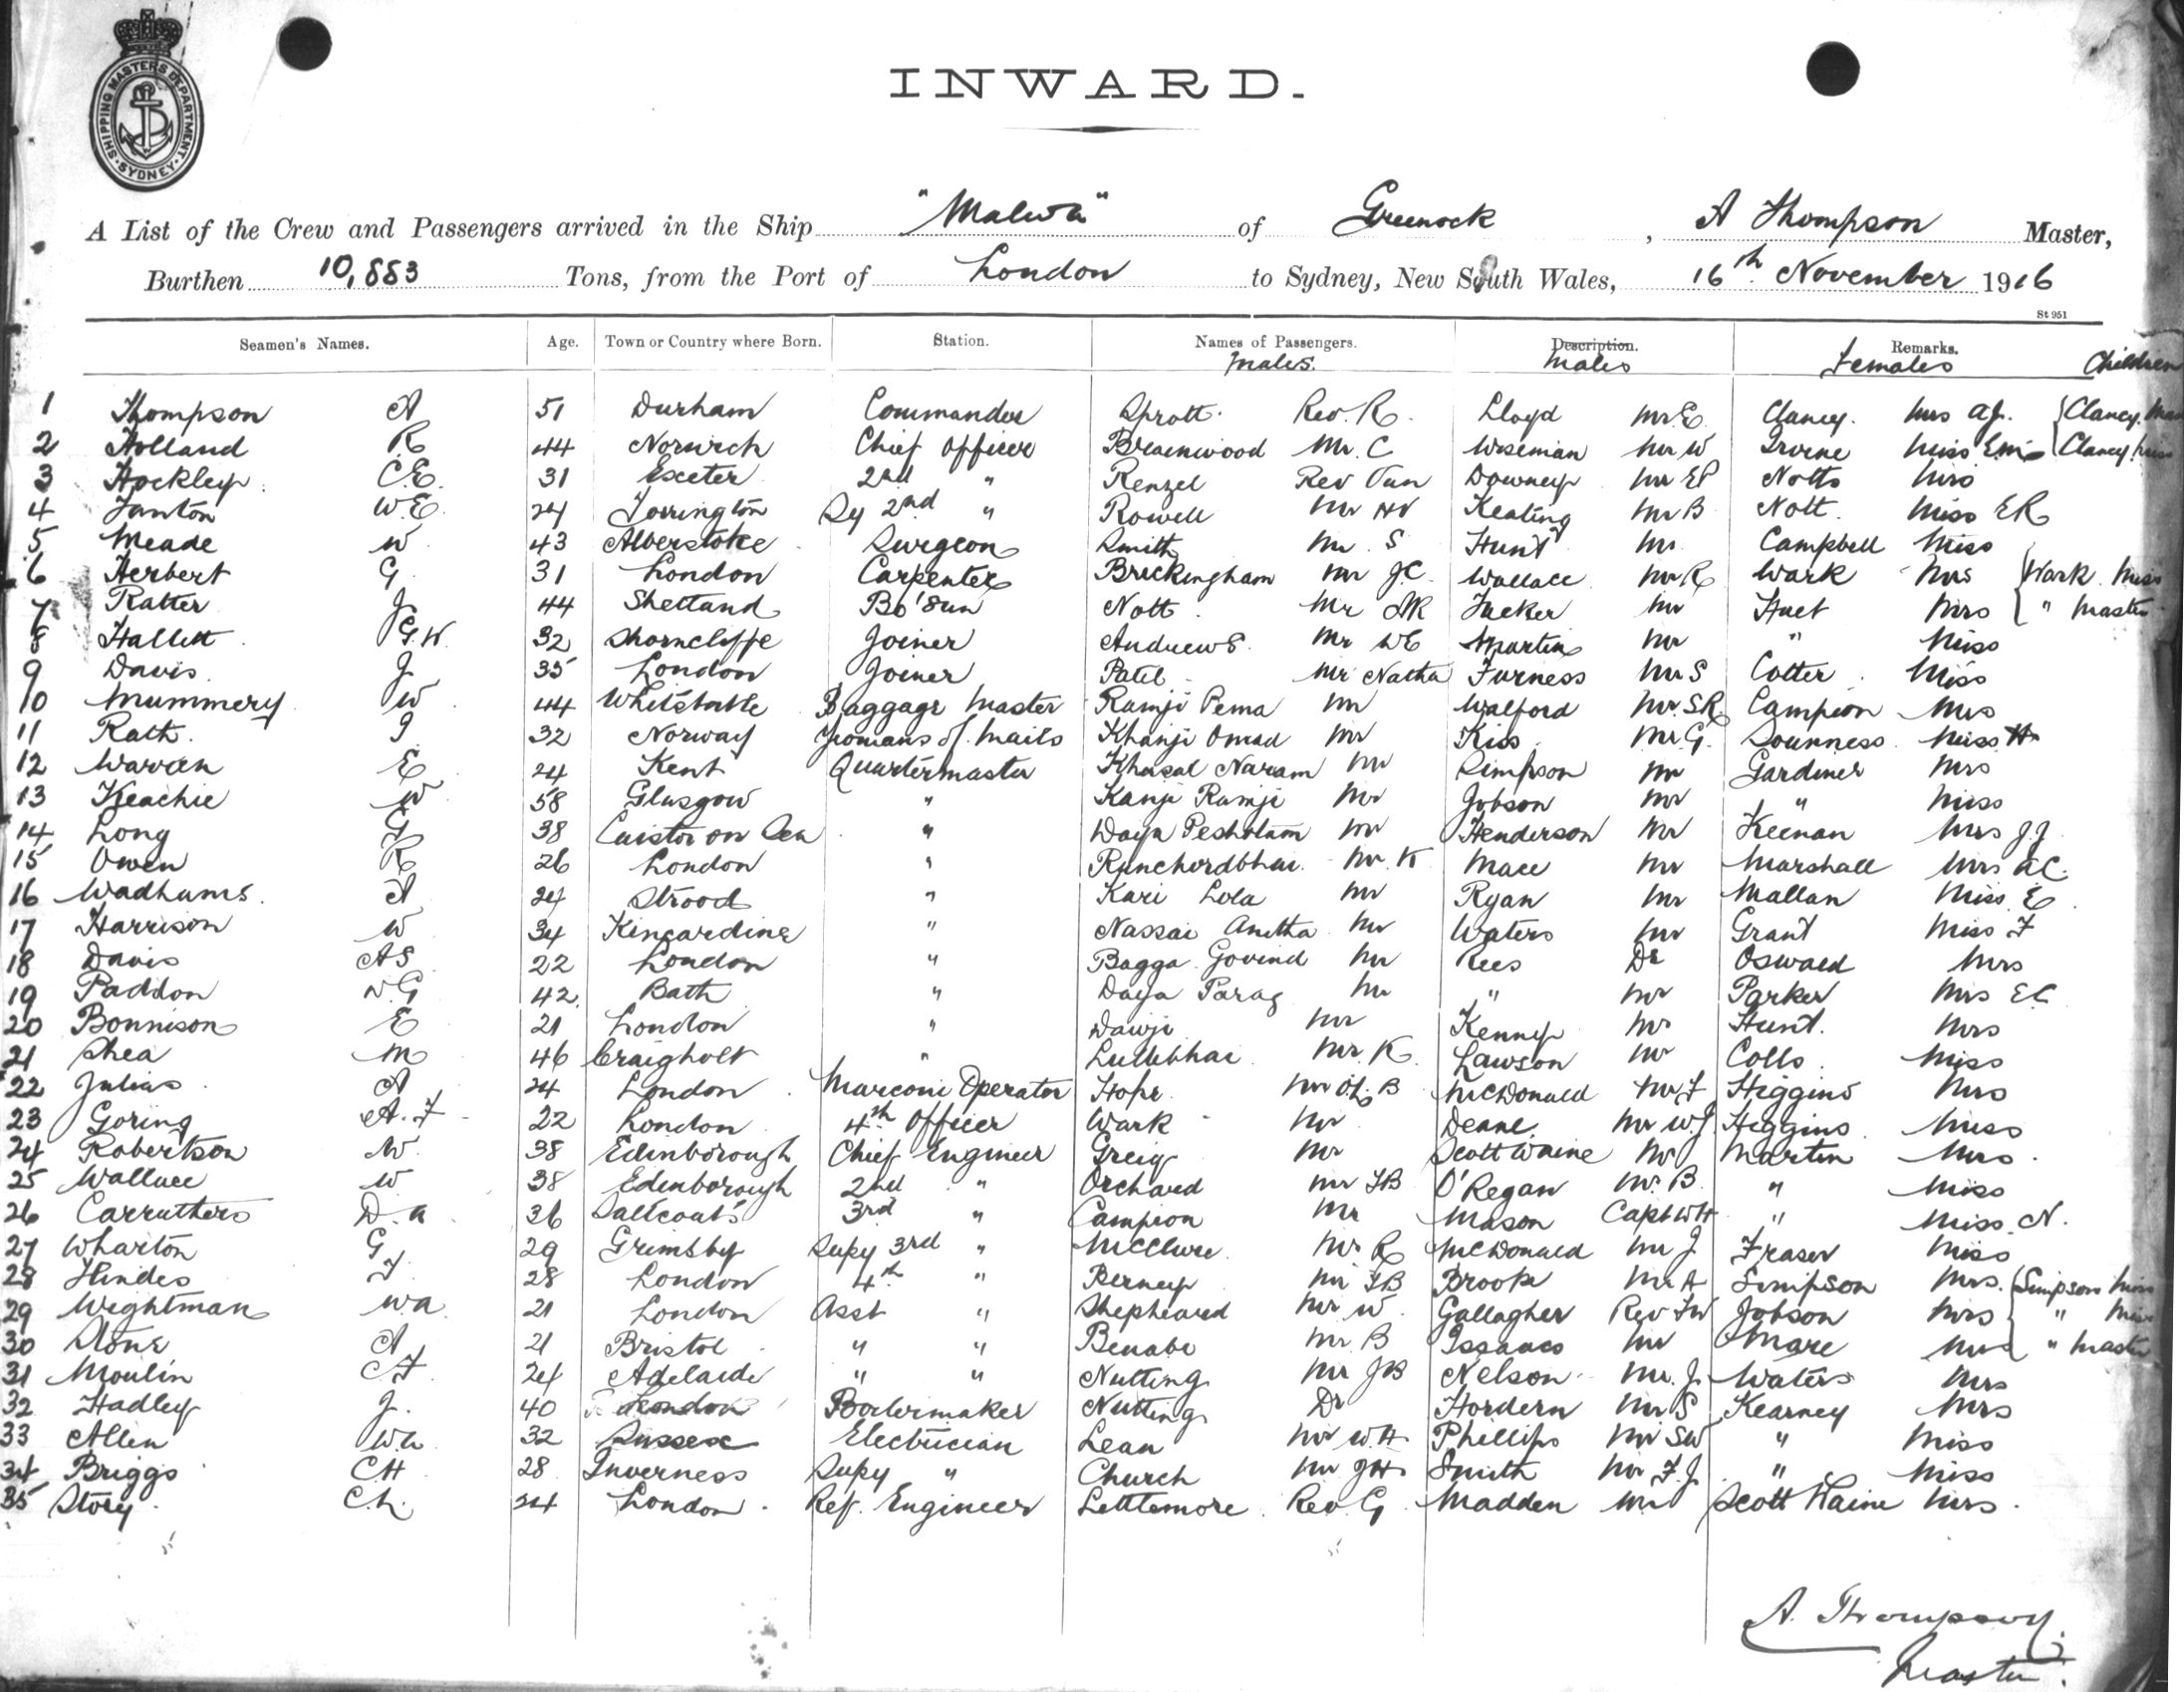 SHIPPING MASTERS DEPARTMENT · SYDNEY ·
INWARD.
A List of the Crew and Passengers arrived in the Ship "Malwa" of Greenock, A Thompson Master,
Burthen 10,883 Tons, from the Port of London to Sydney, New South Wales, 16th November 1916
St 951
Seamen's Names. Age. Town or Country where Born. Station. Names of Passengers. Description. Remarks.
Males. Males Females Children
1 Thompson A 51 Durham Commander Sprott Rev. R. Lloyd Mr E. Clancy. Mrs A.J. Clancy
2 Holland R 44 Norwich Chief Officer Mr. C Wiseman Mr W Irvine Miss Clancy Miss
3 Hockley C.E. 31 Exeter 2nd " Renzel Rev Downey Mr Notts Mrs
4 Tanton W.E. 24 Torrington 2nd " Rowell Mr Keating Mr B Nott. Miss ER
5 Meade W 43 Alverstoke Surgeon Smith Mr. S Hunt Mr Campbell Miss
6 Herbert G. 31 London Carpenter Breckingham Mr J.C. Wallace Mr R Wark Mrs Wark Miss
7 Ratter J 44 Shetland Bo'sun Nott Mr Tucker Mr Huet Mrs " Master
8 Hallett G.W. 32 Shorncliffe Joiner Andrews Mr WE Martin Mr " Miss
9 Davis J. 35 London Joiner Patel Mr Natha Furness Mr S Cotter Miss
10 Mummery W 44 Whitstable Baggage Master Ramji Pema Mr Walford Mr. S.R. Campion Mrs
11 Rath. I 32 Norway Yeomans of Mails Khanji Omad Mr Kiss Mr G. Miss H
12 Warren E 24 Kent Quartermaster Khusal Naram Mr Simpson Mr Gardiner Mrs
13 Keachie W 58 Glasgow " Kanji Ramji Mr Jobson Mr " Miss
14 Long 38 Caistor on Sea " Daya Mr Henderson Mr Keenan Mrs J.J.
15 Owen R 26 London " Runchordbhai Mr. K Mace Mr Marshall Mrs A.C.
16 Wadhams. A 24 Strood " Kari Lola Mr Ryan Mr Mallan Miss E
17 Harrison W 34 Kincardine " Nassai Mr Waters Mr Grant Miss F
18 Davis AS 22 London " Bagga Govind Mr Rees Dr Oswald Mrs
19 Paddon 42. Bath " Daya Parag Mr " Mr Parker Mrs E.C.
20 Bonnison E 21 London " Dawji Mr Kenny Mr Hunt. Mrs
21 Shea M 46 " Lullubhai Mr. K. Lawson Mr Colls Miss
22 Julius A 24 London Marconi Operator Hope Mr McDonald Mr F Higgins Mrs
23 Goring A. F 22 London 4th Officer Wark Mr Deane Mr W.J. Higgins Miss
24 Robertson W. 38 Edinborough Chief Engineer Greig Mr Scott Waine Mr Martin Mrs
25 Wallace W 38 Edinborough 2nd " Orchard Mr FB O'Regan Mr. B " Miss
26 Carruthers D. A 36 Saltcoats 3rd " Campion Mr Mason Capt WH " Miss N.
27 Wharton G 29 Grimsby Supy 3rd " McClure Mr R McDonald Mr J Fraser Miss
28 Hindes F. 28 London 4th " Berney Mr FB Brook Mr A Simpson Mrs. Simpson Miss
29 Wightman W.A. 21 London Asst " Shepheard Mr W. Gallagher Rev FW Jobson Mrs " Miss
30 Stone A 21 Bristol " " Benabo Mr. B Issaacs Mr Mare Mrs " Master
31 Moulin 24 Adelaide " " Nutting Mr JB Nelson Mr. J. Waters Mrs
32 Hadley J. 40 London Boilermaker Nutting Dr Hordern Mr S Kearney Mrs
33 Allen WA 32 Sussex Electrician Lean Mr W.H Phillips Mr SW " Miss
34 Briggs CH 28 Inverness Supy " Church Mr Smith Mr F.J. " Miss
35 Story C.L. 24 London Ref. Engineer Lettlemore Rev. G Madden Mr Scott Waine Mrs.
A. Thompson
Master.